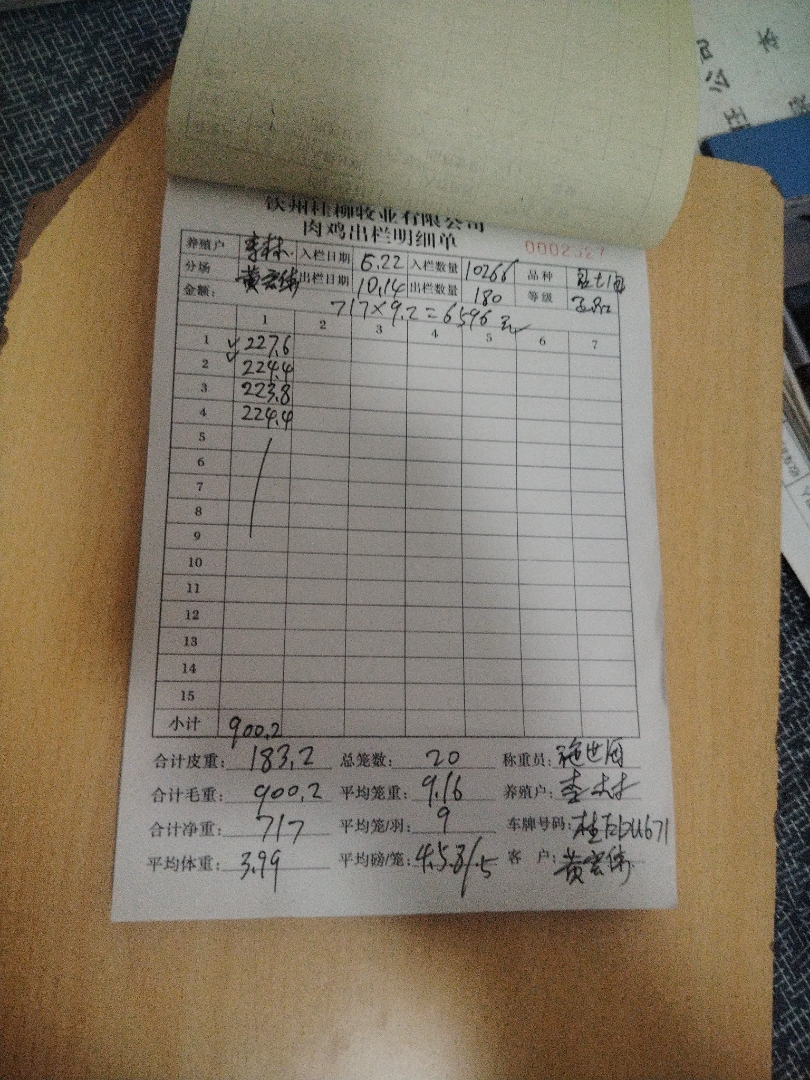 钦州桂柳牧业有限公司
肉鸡出栏明细单
养殖户 李林 入栏日期 6.22 入栏数量 10266 品种
分场 黄宏伟 出栏日期 10.14 出栏数量 180 等级
金额: 717×9.2=6596元
1 2 3 4 5 6 7
1 227.6
2 224.4
3 223.8
4 224.4
5
6
7
8
9
10
11
12
13
14
15
小计 900.2
合计皮重: 183.2 总笼数: 20 称重员:
合计毛重: 900.2 平均笼重: 9.16 养殖户: 李林
合计净重: 717 平均笼/羽: 9 车牌号码:
平均体重: 3.99 平均磅/笼: 4.5.3/.5 客户: 黄宏伟